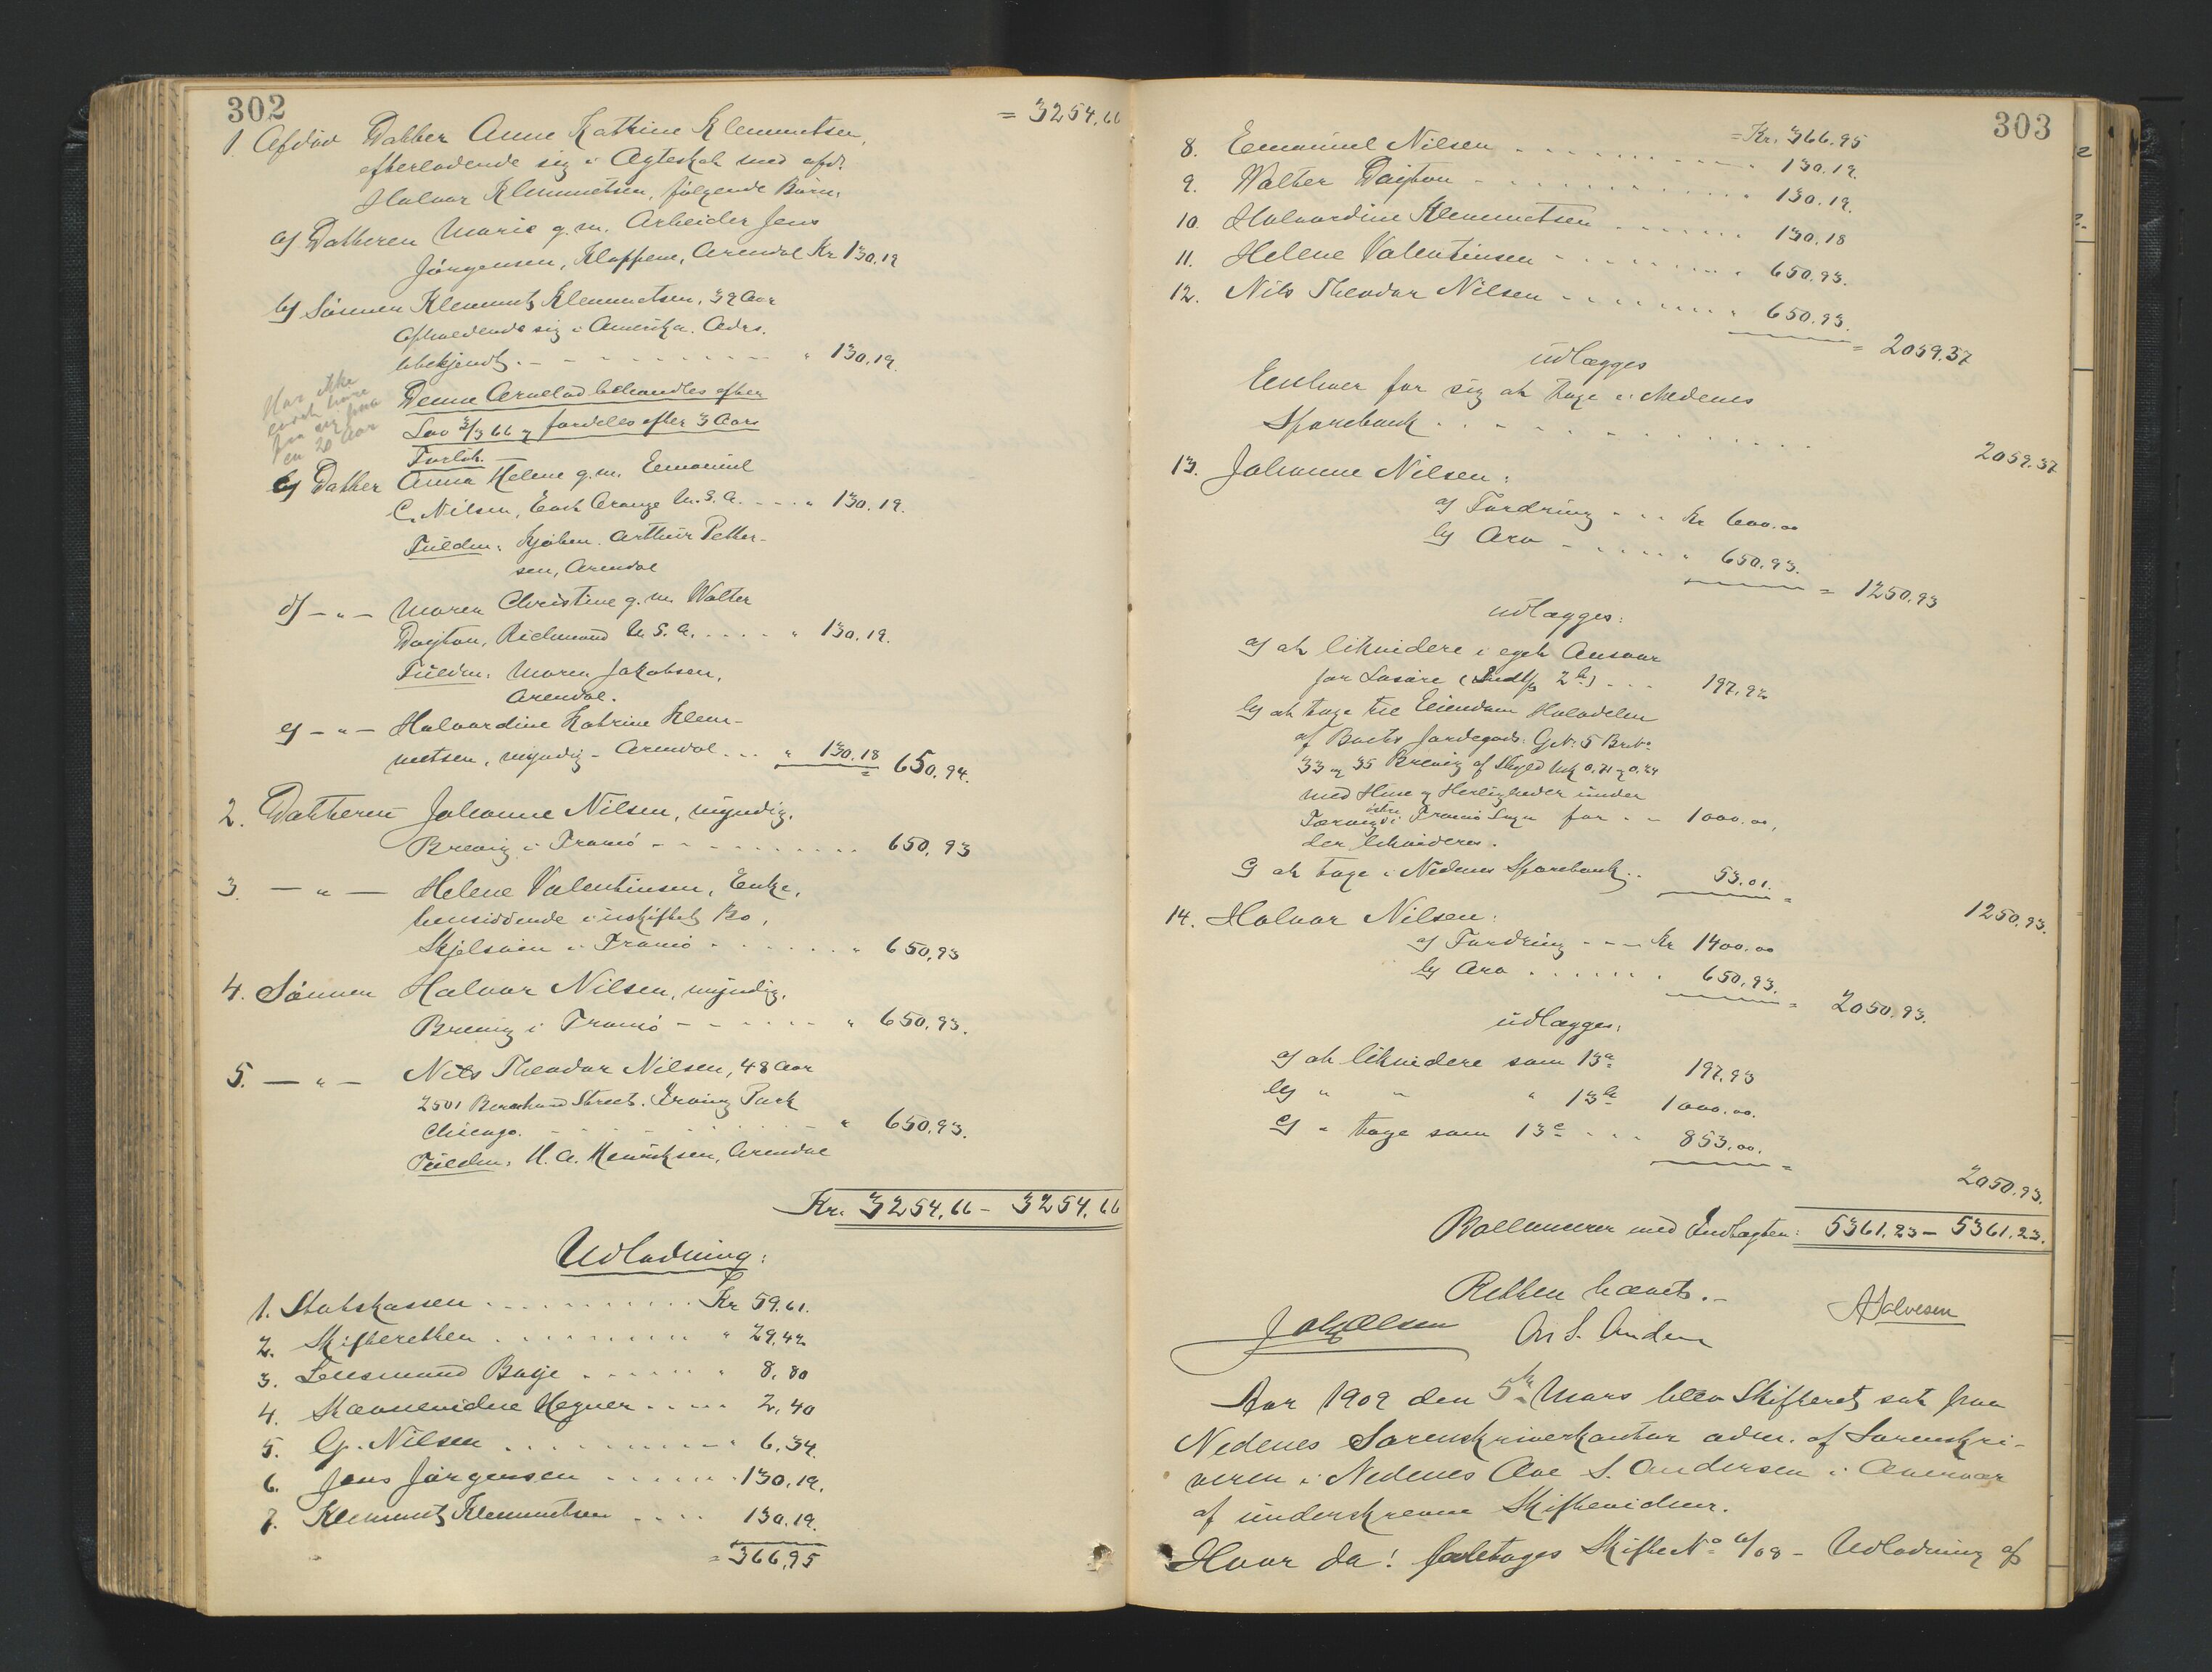 302
= 3254,66
1. Afdød Datter Anne Kathrine Klemmetsen,
efterladende sig i Ægteskab med afd.
Halvor Klemmetsen, følgende Børn:
a) Datteren Marie g.m. Arbeider Jens
Jørgensen, Kloppene, Arendal Kr 130.19
b) Sønnen Klemmet Klemmetsen, 39 Aar
Opholdende sig i Amerika. Adrs.
Ubekjendt. - - - " 130.19.
Denne Arvelod behandles efter
Lov 3/3 66 og fordeles efter 3 Aars
Forløb.
Har ikke
20 Aar
c) Datter Anna Helene g.m. Emanuel
C. Nilsen, East Orange U.S.A. - - - " 130.19.
Fuldm: Kjøbm. Arthur Petter-
sen, Arendal
d) - " - Maren Christine g.m. Walter
Dayton, Richmond U.S.A. . . . . " 130.19.
Fuldm: Maren Jakobsen,
Arendal.
e) - " - Halvardine Katrine Klem-
metsen, myndig - Arendal . . . " 130.18 = 650.94.
2. Datteren Johanne Nilsen, myndig.
Brevig i Tromø - - - - 650,93
3. - " - Helene Valentinsen, Enke,
hensiddende i uskiftet Bo,
Skjelsvien i Tromø . . . . . " 650,93
4. Sønnen Halvor Nilsen, myndig.
Brevig i Tromø - - - - " 650,93.
5. - " - Nils Theodor Nilsen, 48 Aar
2501 Street. Irving Park
Chicago. - - - - " 650.93.
Fuldm: H. A. Henriksen, Arendal
Kr. 3254,66 - 3254,66
Udlodning:
1. Statskassen . . . . . . . . Kr 59.61.
2. Skifteretten . . . . . . . . " 29,42
3. Lensmand Batje . . . . . . " 8,80
4. Stævnevidne Hegner . . . . . 2,40
5. G. Nilsen . . . . . . . . " 6.34.
6. Jens Jørgensen . . . . . . " 130.19.
7. Klemmet Klemmetsen . . . . 130.19.
= 366,95
303
= Kr. 366.95
8. Emanuel Nilsen . . . . . . . . " 130.19.
9. Walter Dayton - . . . . . . . . " 130.19.
10. Halvardine Klemmetsen . . . . . . " 130.18
11. Helene Valentinsen - . . . . . . " 650.93.
12. Nils Theodor Nilsen - . . . . . . " 650.93.
= 2059.37
udlægges
Enhver for sig at tage i Nedenes
Sparebank . . . . . . . . . . . 2059.37
13. Johanne Nilsen:
a) Fordring - . . . Kr 600.00
b) Arv - . . . . . " 650.93.
= 1250.93
udlægges:
a) at likvidere i eget Ansvar
for Løsøre (Indt/p 2b) . . . 197.92
b) at tage til Eiendom Halvdelen
af Boets Jordegods: Gno. 5 Brno.
33 og 35 Brevig af Skyld Mk 0.71 og 0.24
med Huse og Herligheder under
østre
i Tromø Sogn for . - 1000.00,
der likvideres.
c) at tage i Nedenes Sparebank . . 53.01.
= 1250.93.
14. Halvor Nilsen:
a) Fordring - - - Kr 1400.00
b) Arv . . . . . . . 650.93.
= 2050.93.
udlægges:
a) at likvidere som 13a 197.93
b) " " " 13b 1000.00.
c) " tage som 13c . . . 853.00.
= 2050.93.
Ballancerer med Indtægten: 5361.23 - 5361.23.
Retten hævet. -
Joh. Olsen On S. Andersen A Salvesen
Aar 1909 den 5te Mars blev Skifteret sat paa
Nedenes Sorenskriverkontor adm. af Sorenskri-
veren i Nedenes Ove S. Andersen i Overvær
af underskrevne Skiftevidner.
Hvor da! foretoges Skifte No 61/08 - Udlodning af